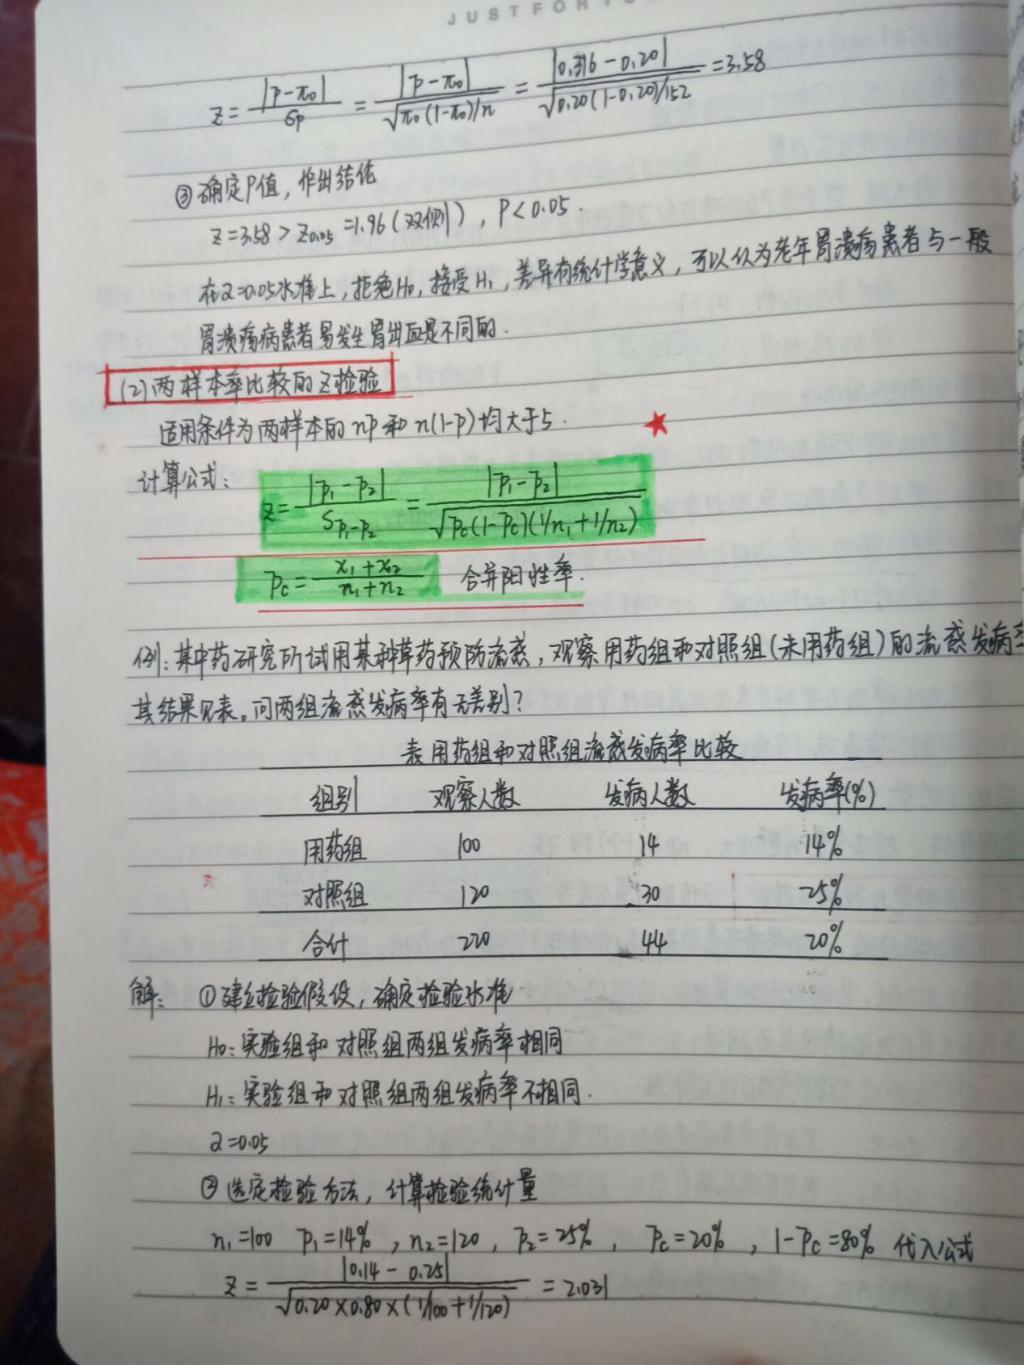 JUST FOR
z = |p-π₀| / σp = |p-π₀| / √π₀(1-π₀)/n = |0.316-0.20| / √0.20(1-0.20)/152 = 3.58
③确定P值，作出结论
z=3.58 > z0.05 =1.96(双侧)，P<0.05.
在α=0.05水准上，拒绝H₀，接受H₁，差异有统计学意义，可以认为老年胃溃疡病患者与一般
胃溃疡病患者易发生胃出血是不同的.
(2)两样本率比较的Z检验
适用条件为两样本的np和n(1-p)均大于5.
计算公式：
z = |p₁-p₂| / Sp₁-p₂ = |p₁-p₂| / √pc(1-pc)(1/n₁+1/n₂)
pc = x₁+x₂ / n₁+n₂ 合并阳性率.
例：某中药研究所试用某种草药预防流感，观察用药组和对照组(未用药组)的流感发病率
其结果见表。问两组流感发病率有无差别？
表 用药组和对照组流感发病率比较
组别 观察人数 发病人数 发病率(%)
用药组 100 14 14%
对照组 120 30 25%
合计 220 44 20%
解： ①建立检验假设，确定检验水准
H₀：实验组和对照组两组发病率相同
H₁：实验组和对照组两组发病率不相同.
α=0.05
②选定检验方法，计算检验统计量
n₁=100 p₁=14%，n₂=120，p₂=25%， pc=20%，1-pc=80% 代入公式
z = |0.14-0.25| / √0.20×0.80×(1/100+1/120) = 2.031